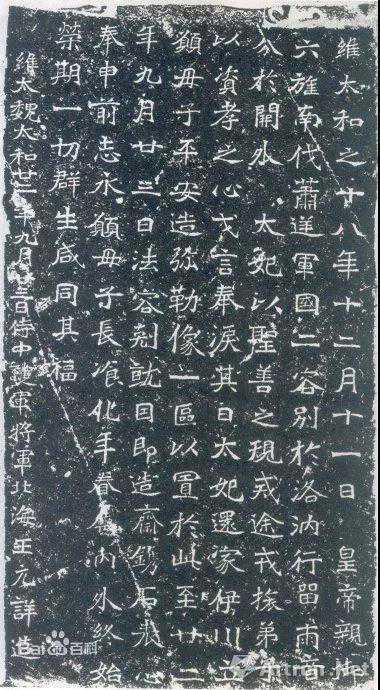 維太和之十八年十二月十一日 皇帝親
六旌南伐蕭逆軍國二容別於洛汭行留兩音
分於闕外 太妃以聖善之規戒途戎旅弟子
以資孝之心戈言奉淚其日太妃還家伊川立
願母子平安造弥勒像一區以置於此至廿二
年九月廿三日法容剋就因即造齋鐫石表心
奉申前志永願母子長飡化年眷屬內外終始
榮期一切群生咸同其福
維大魏太和廿二年九月廿三日侍中護軍將軍北海王元詳造
Bai百科
Artron.Net